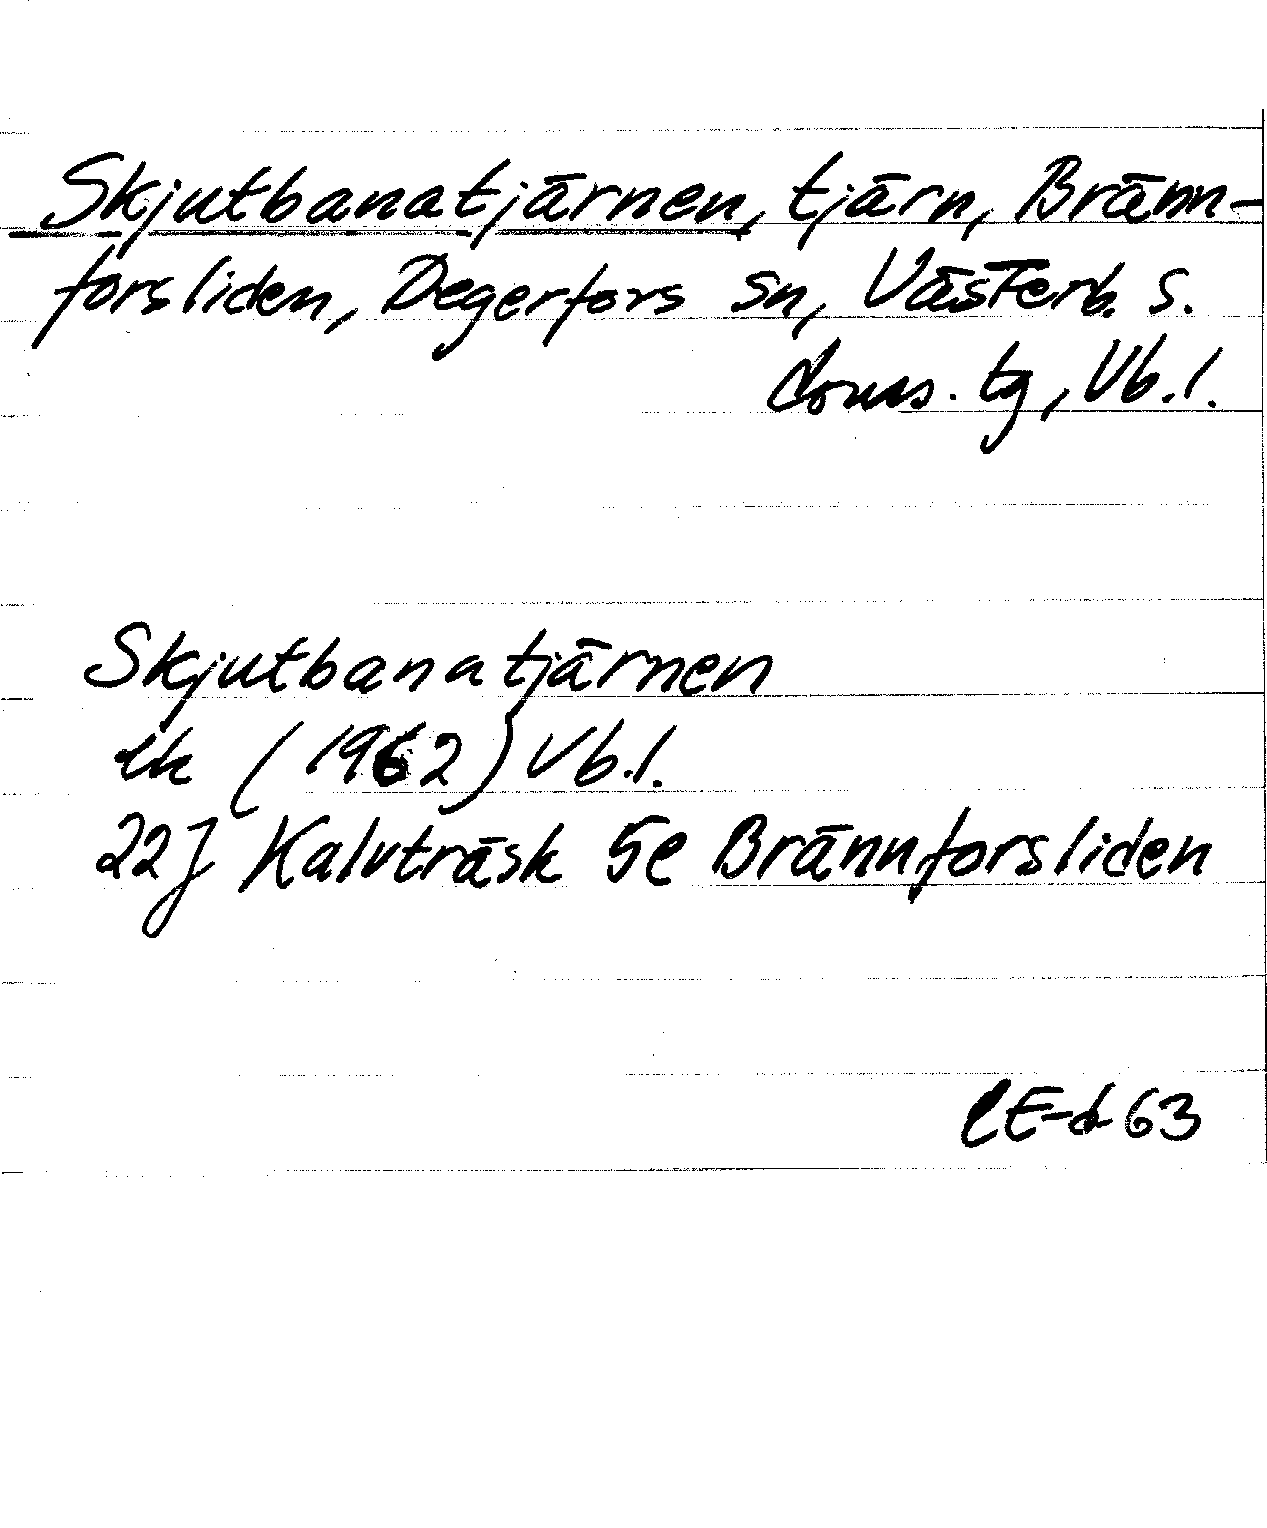 Skjutbanatjärnen, tjärn, Bränn-
forsliden, Degerfors sn, Västerb. s.
doms. tg, Vb.l.
Skjutbanatjärnen
ek (1962) Vb.l.
22J Kalvträsk 5e Brännforsliden
63